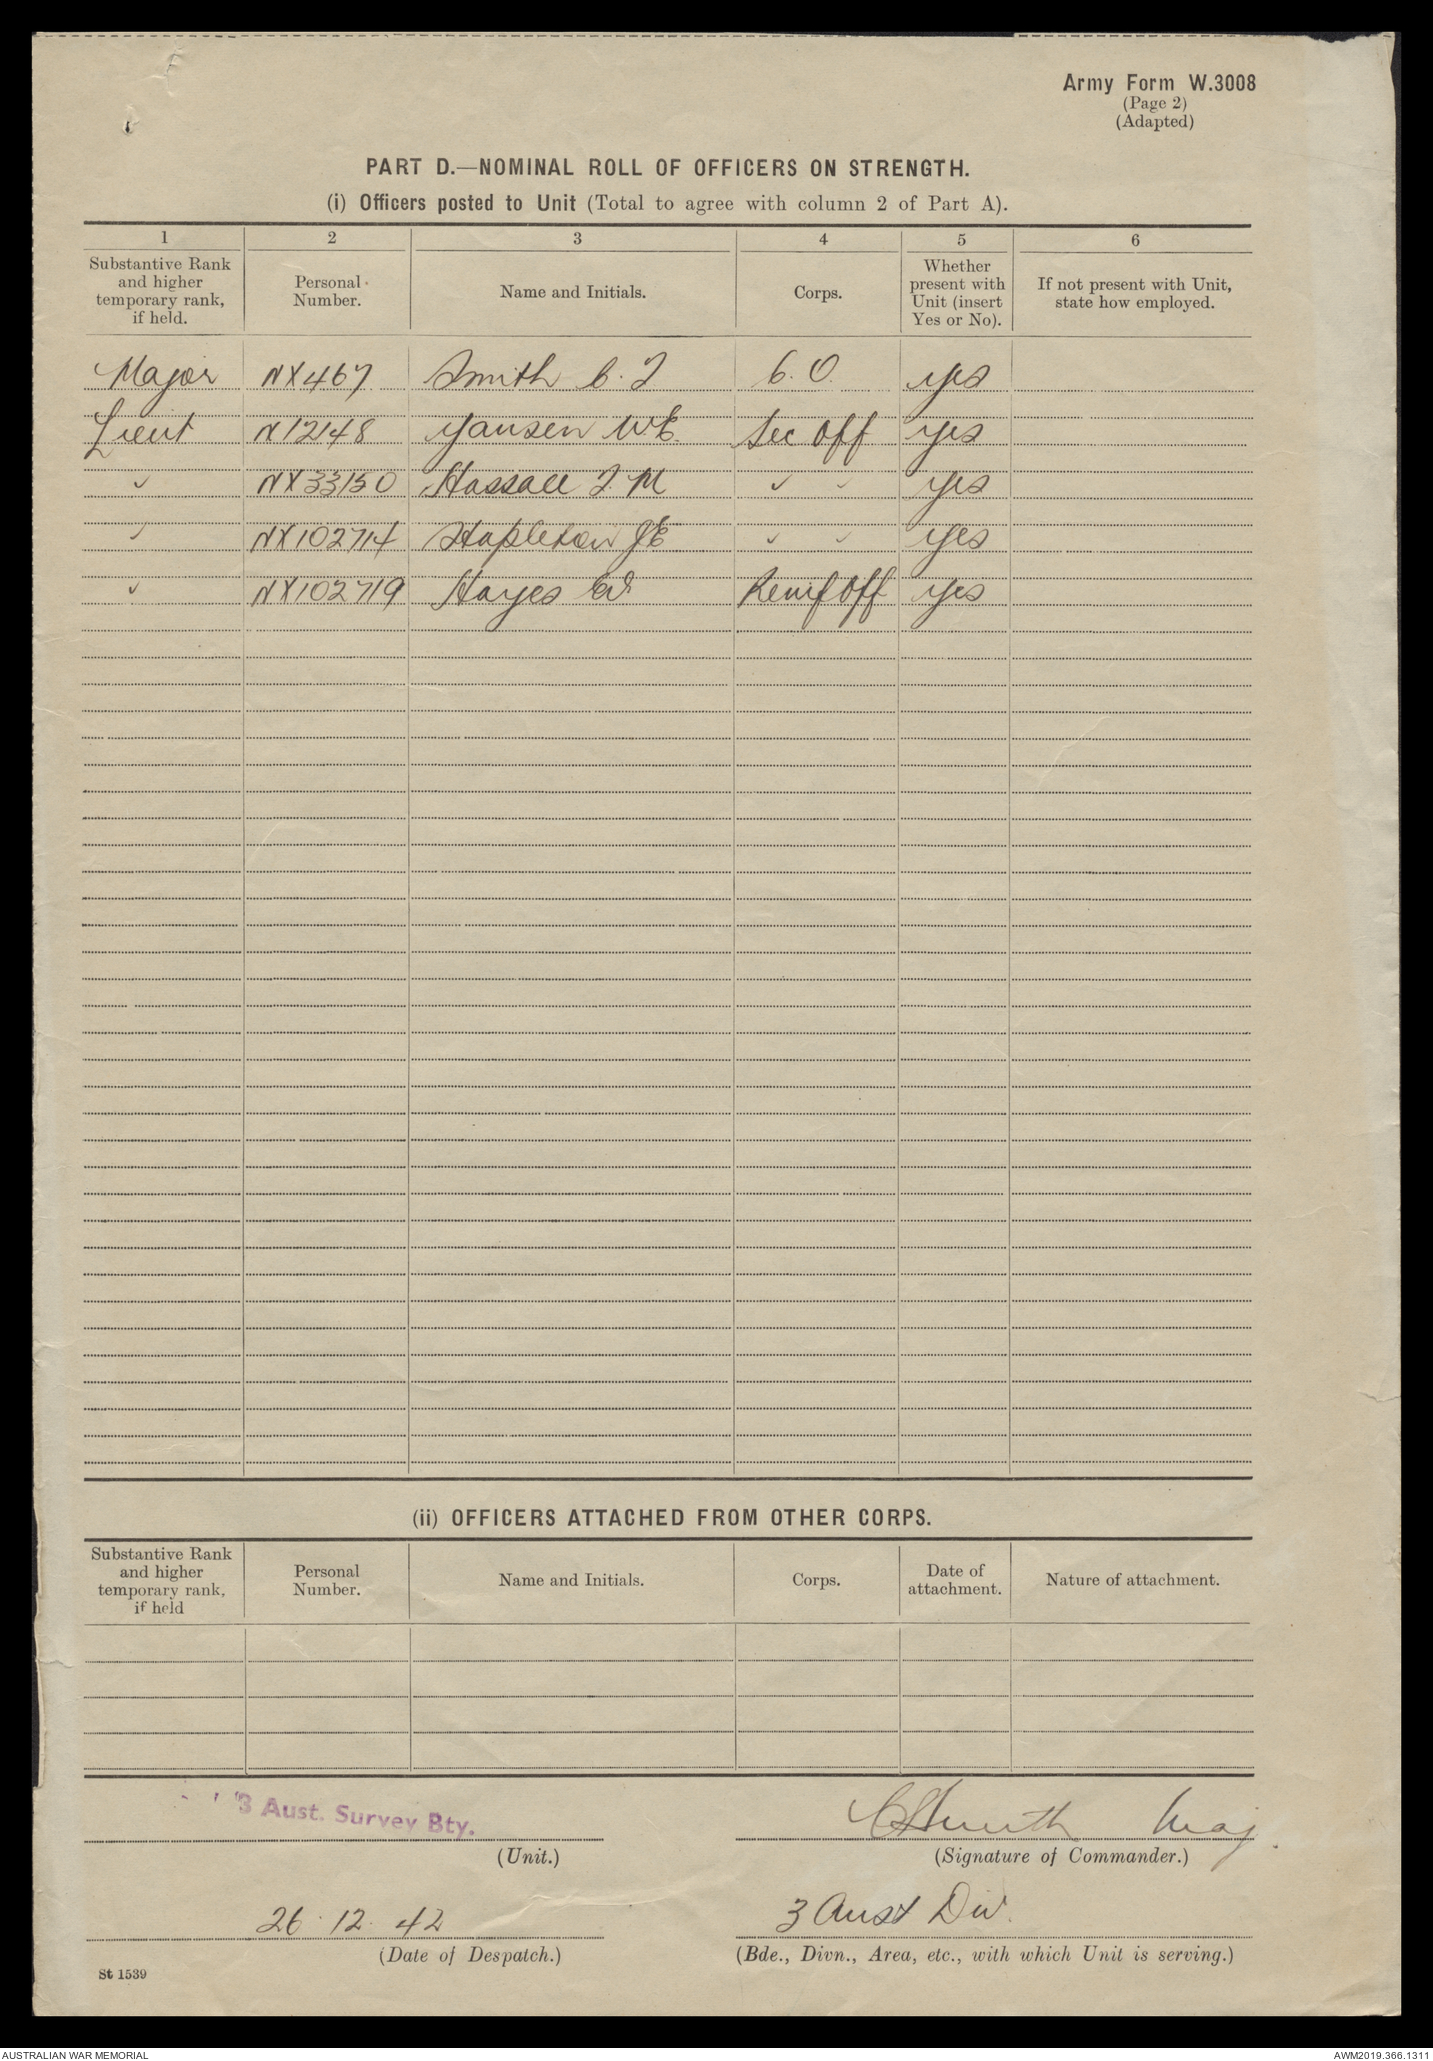 Army Form W.3008
(Page 2)
(Adapted)
PART D.—NOMINAL ROLL OF OFFICERS ON STRENGTH.
(i) Officers posted to Unit (Total to agree with column 2 of Part A).
1 2 3 4 5 6
Substantive Rank and higher temporary rank, if held. Personal Number. Name and Initials. Corps. Whether present with Unit (insert Yes or No). If not present with Unit, state how employed.
Major NX467 Smith C. F C. O. yes
Lieut N12148 Yansen W E. Sec Off yes
" NX33150 Hassall F. M " " yes
" NX102714 Stapleton J E " " yes
" NX102719 Hayes Reinf Off yes
(ii) OFFICERS ATTACHED FROM OTHER CORPS.
Substantive Rank and higher temporary rank, if held Personal Number. Name and Initials. Corps. Date of attachment. Nature of attachment.
3 Aust. Survey Bty. CFSmith Maj.
(Unit.) (Signature of Commander.)
26.12.42 3 Aust Div.
(Date of Despatch.) (Bde., Divn., Area, etc., with which Unit is serving.)
St 1539
AUSTRALIAN WAR MEMORIAL AWM2019.366.1311